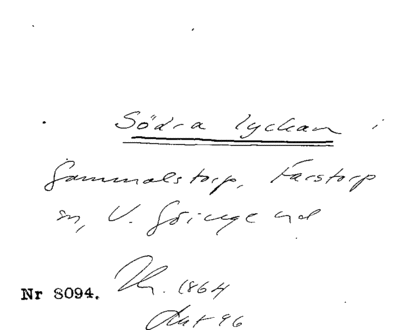 Södra lyckan i
Gammalstorp, Farstorp
sn, V. Göinge hd
Nr 8094.
1864
96